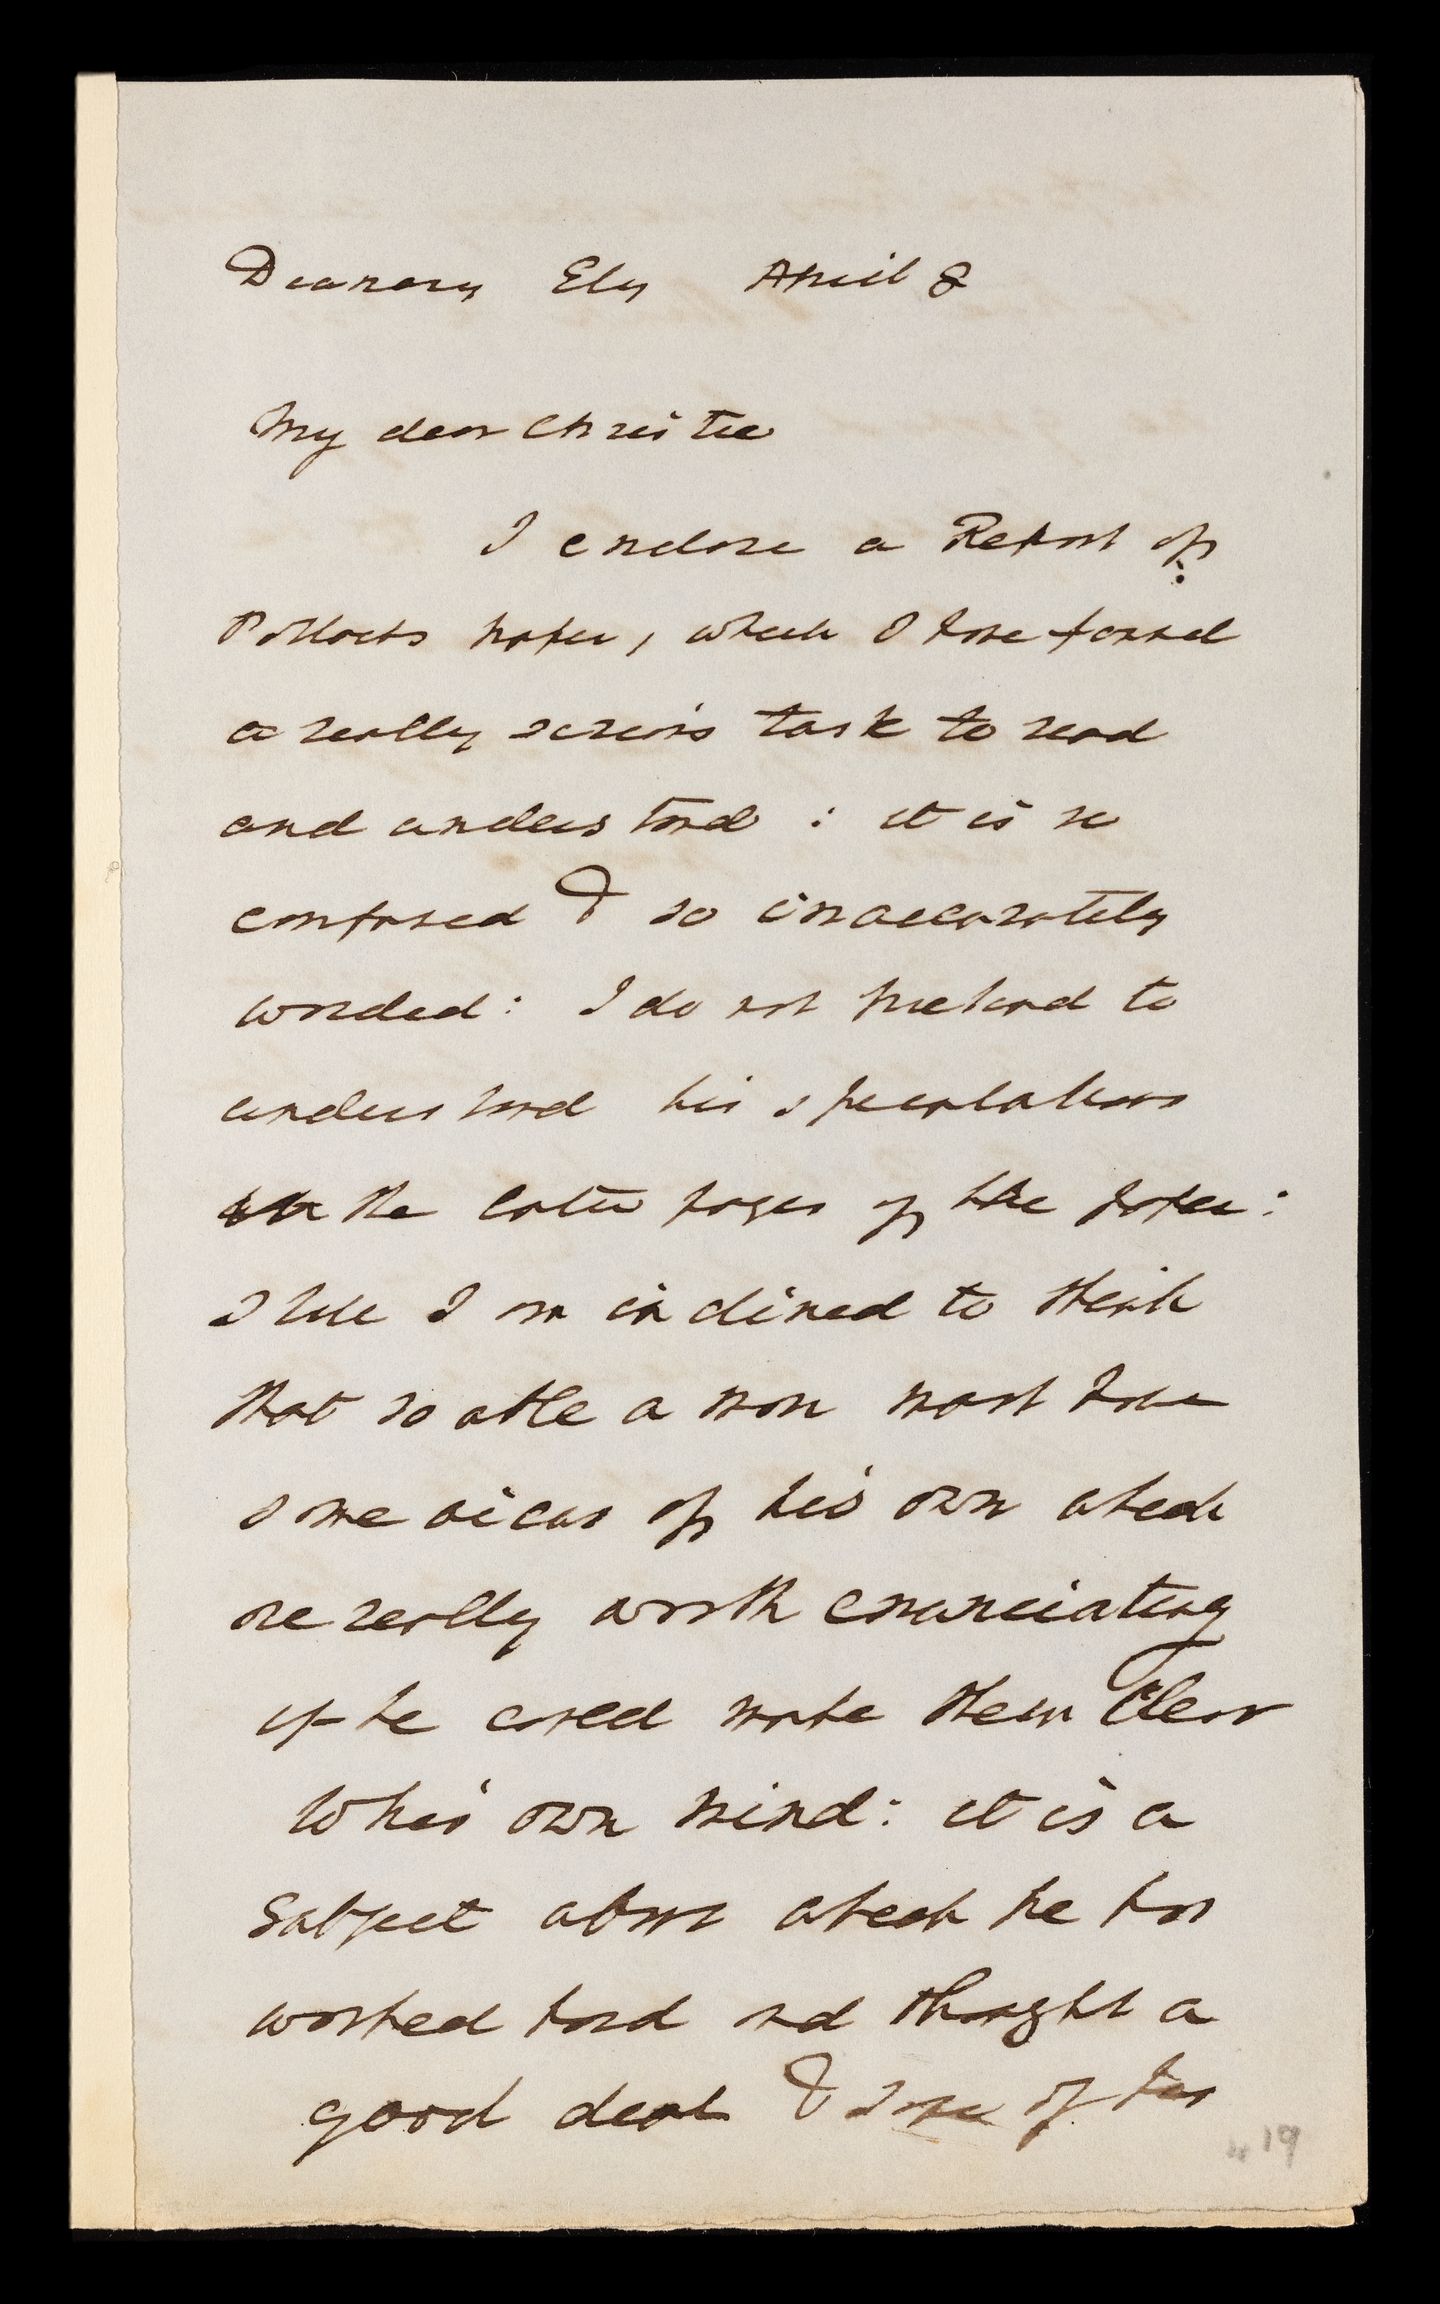 Deanery Ely April 8
My dear Christie
I enclose a Report of
Pollocks paper, which I have found
a really serious task to read
and understand : it is so
confused & so inaccurately
worded : I do not pretend to
understand his speculations
in the later pages of the paper :
I am inclined to think
that so able a man must have
some views of his own which
are really worth enunciating
if he could make them clear
to his own mind : it is a
subject about which he has
worked hard and thought a
good deal & some of his
419